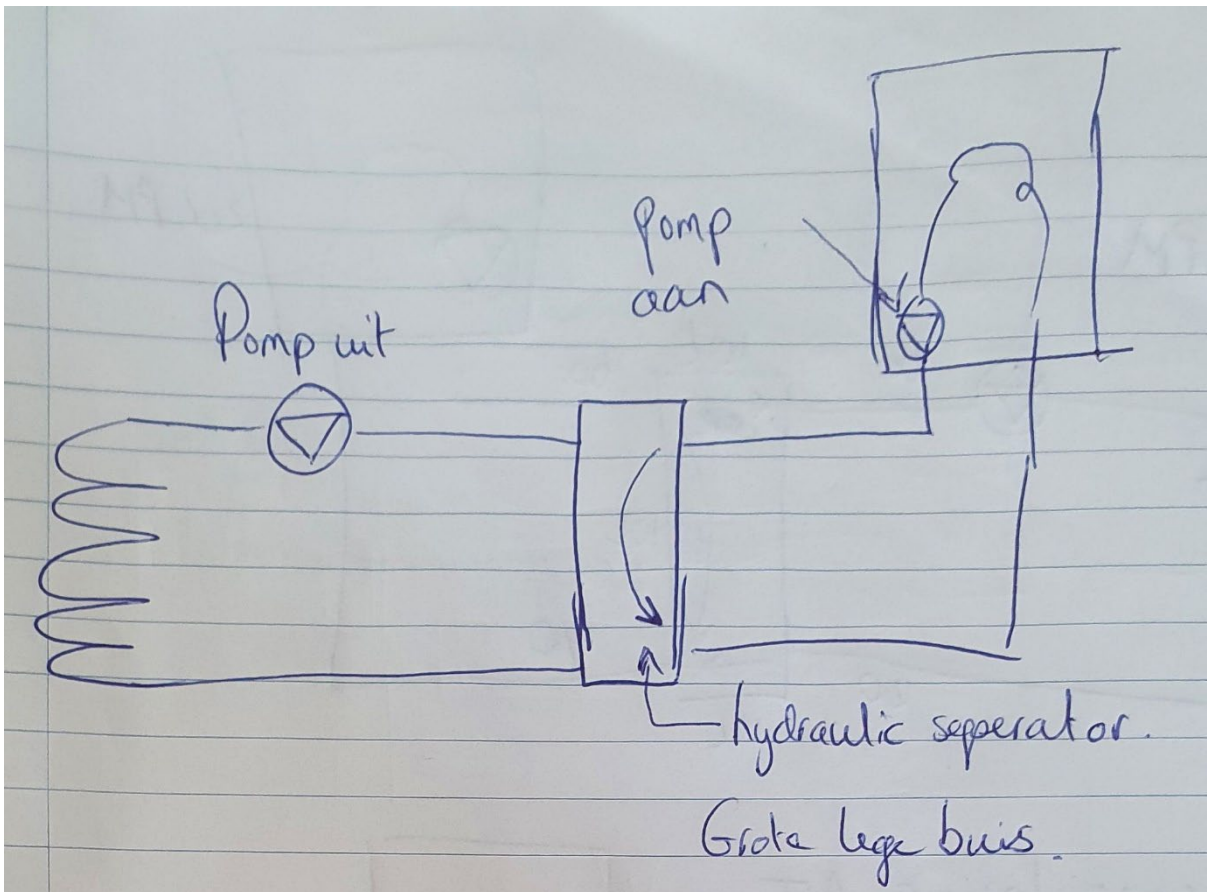 Pomp
aan
Pomp uit
hydraulic seperator.
Grote lege buis.